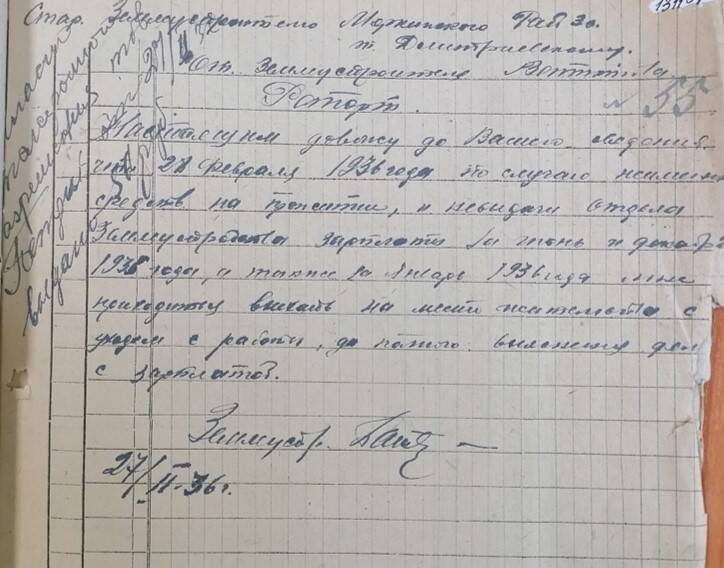 Стар. Землеустроителю Моркинского РайЗо.
т. Дмитриевскому.
От Землеустроителя
Рапорт.
№ 55
Настоящим довожу до Вашего сведения
что 28 февраля 1936 года по случаю неимения
средств на прожитие, и невыдачи отдела
Землеустройства зарплаты за июнь и декабрь
1935 года, а также за январь 1936 года мне
приходиться выехать на место жительства с
уходом с работы, до полного выяснения дел
с зарплатой.
Землеустр.
27/II-36г.
27/II
выдано
1311